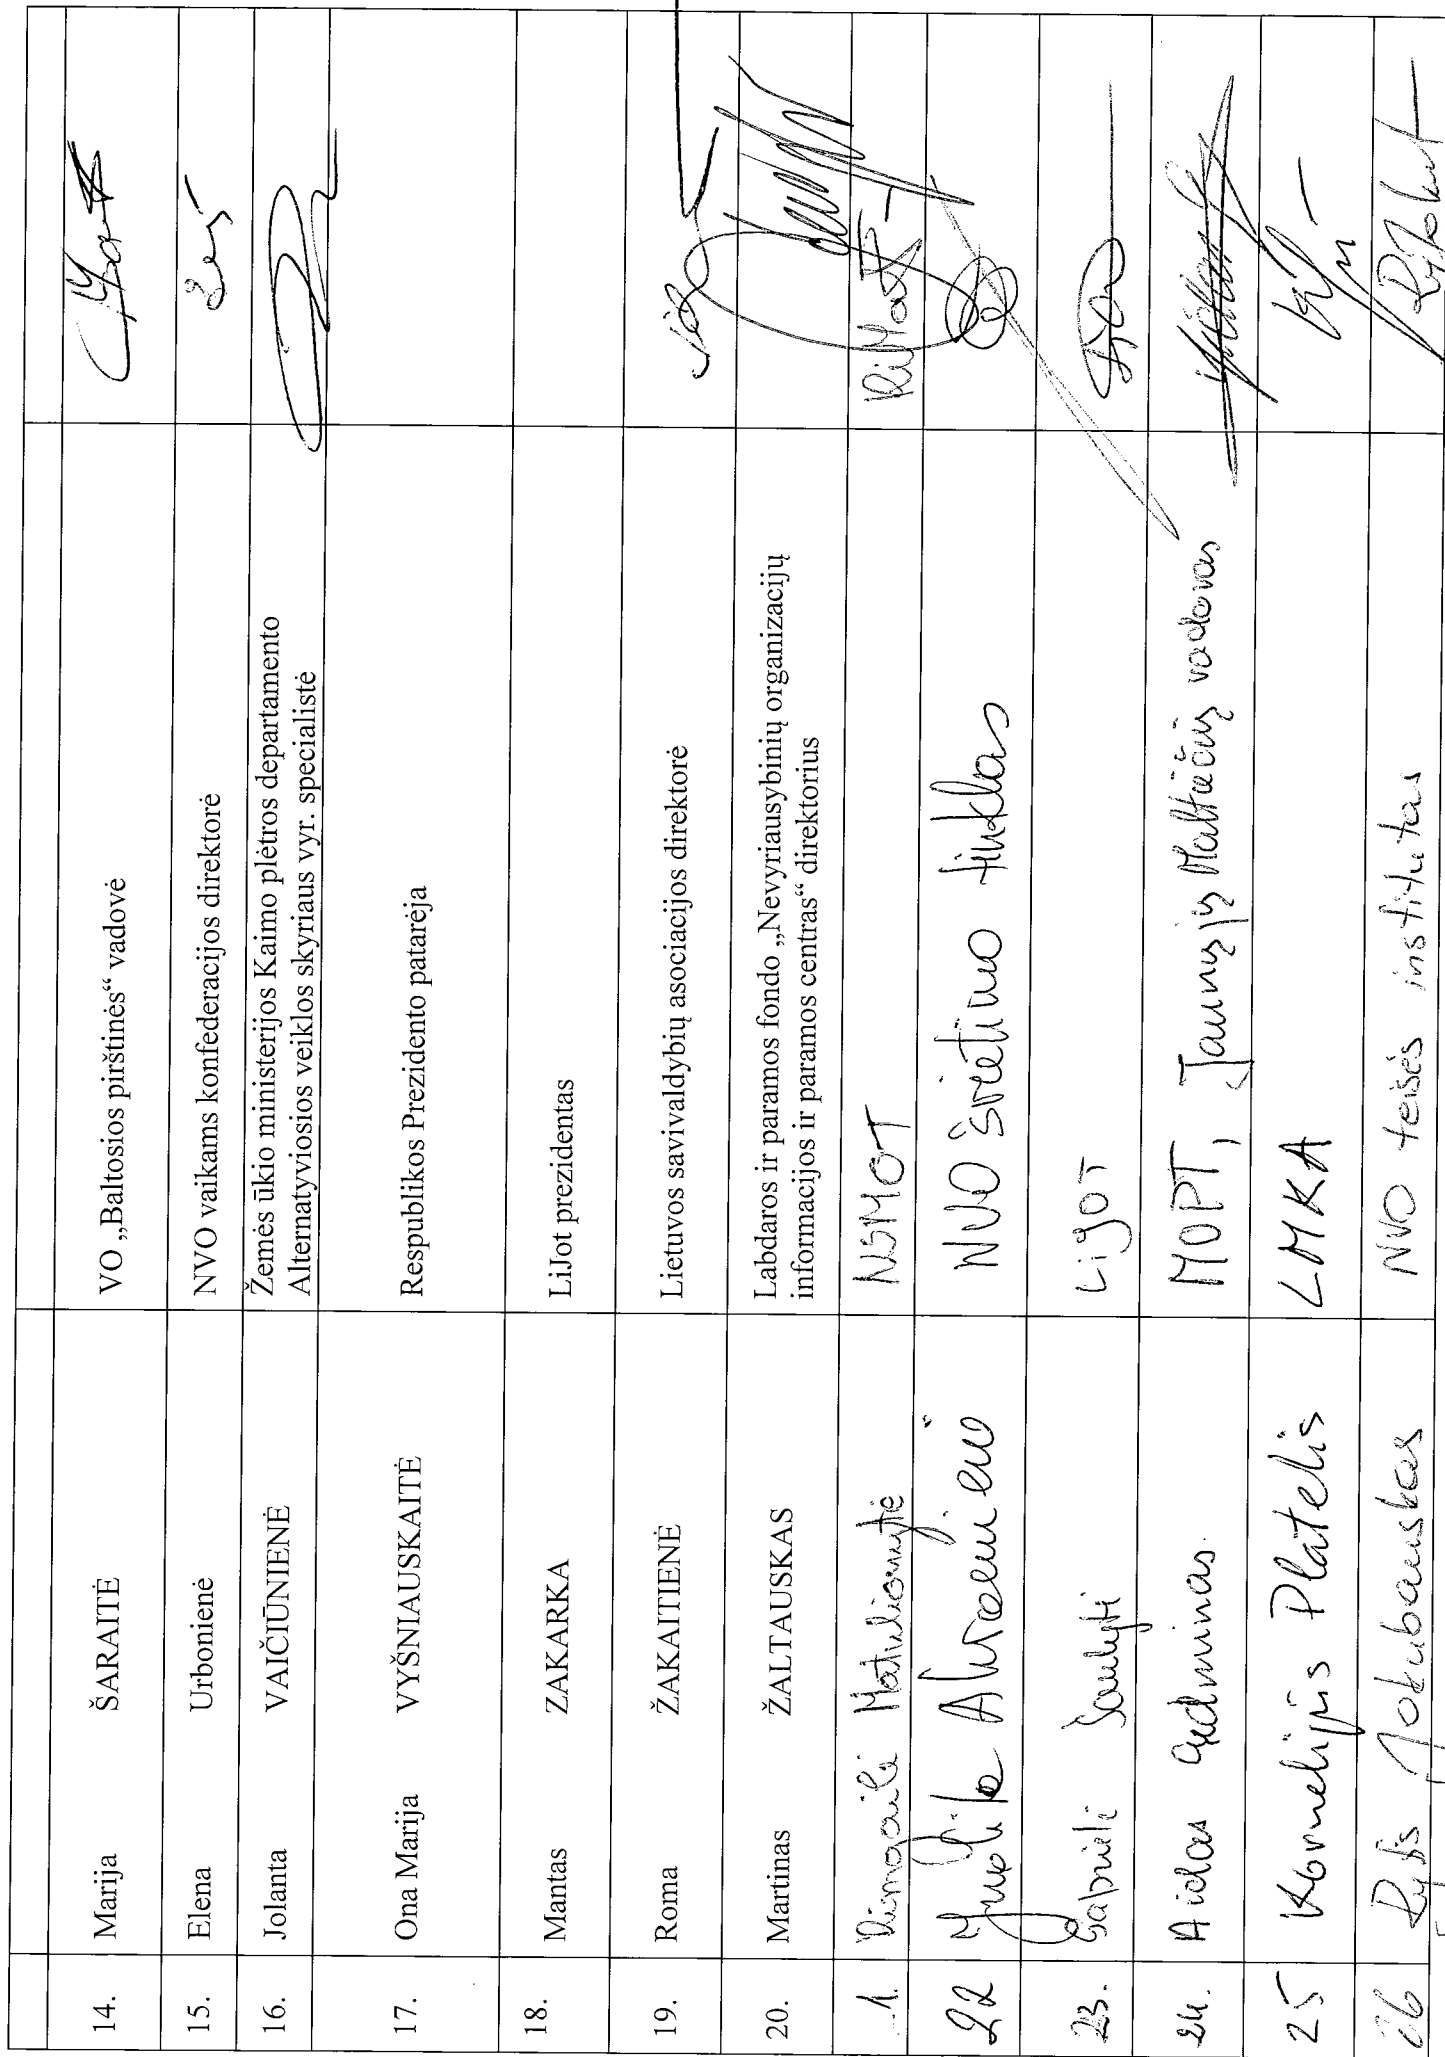 14. Marija ŠARAITĖ VO „Baltosios pirštinės“ vadovė
15. Elena Urbonienė NVO vaikams konfederacijos direktorė
16. Jolanta VAIČIŪNIENĖ Žemės ūkio ministerijos Kaimo plėtros departamento
Alternatyviosios veiklos skyriaus vyr. specialistė
17. Ona Marija VYŠNIAUSKAITĖ Respublikos Prezidento patarėja
18. Mantas ZAKARKA LiJot prezidentas
19. Roma ŽAKAITIENĖ Lietuvos savivaldybių asociacijos direktorė
20. Martinas ŽALTAUSKAS Labdaros ir paramos fondo „Nevyriausybinių organizacijų
informacijos ir paramos centras“ direktorius
1. Matulionytė NSMOT
22 NVO švietimo tinklas
23. Gabrielė Saulytė LiJOT
24. Aidas Gudminas. MOPT, Jaunųjų Maltiečių vadovas
25 Kornelijus Platelis LMKA
26 Rytis Jokubauskas NVO teisės institutas